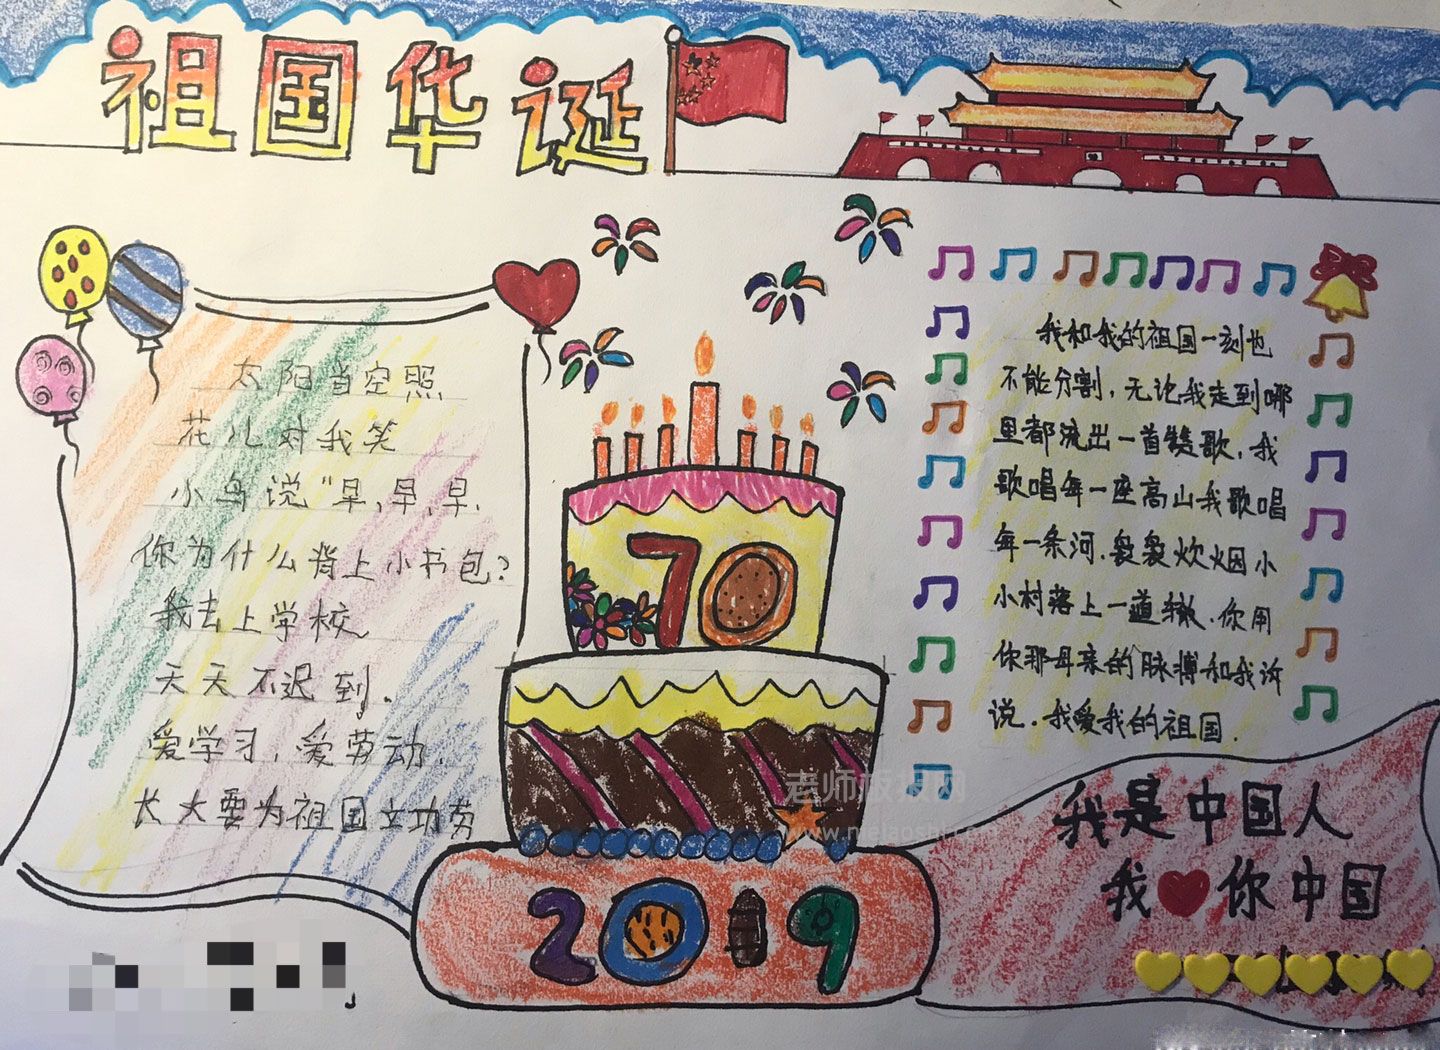 祖国华诞
太阳当空照
花儿对我笑
小鸟说"早,早,早.
你为什么背上小书包?
我去上学校
天天不迟到.
爱学习,爱劳动.
长大要为祖国立功劳
70
2019
我和我的祖国一刻也
不能分割,无论我走到哪
里都流出一首赞歌,我
歌唱每一座高山我歌唱
每一条河.袅袅炊烟小
小村落上一道辙.你用
你那母亲的脉搏和我诉
说.我爱我的祖国.
老师板报网
我是中国人
我❤你中国